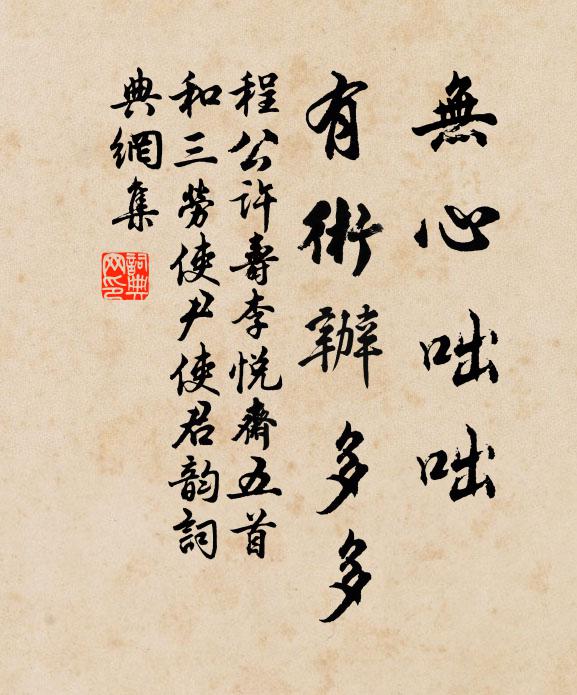 無心咄咄
有術辦多多
程公許壽李悅齋五首
和三勞使尹使君韵詞
典網集
詞典網印